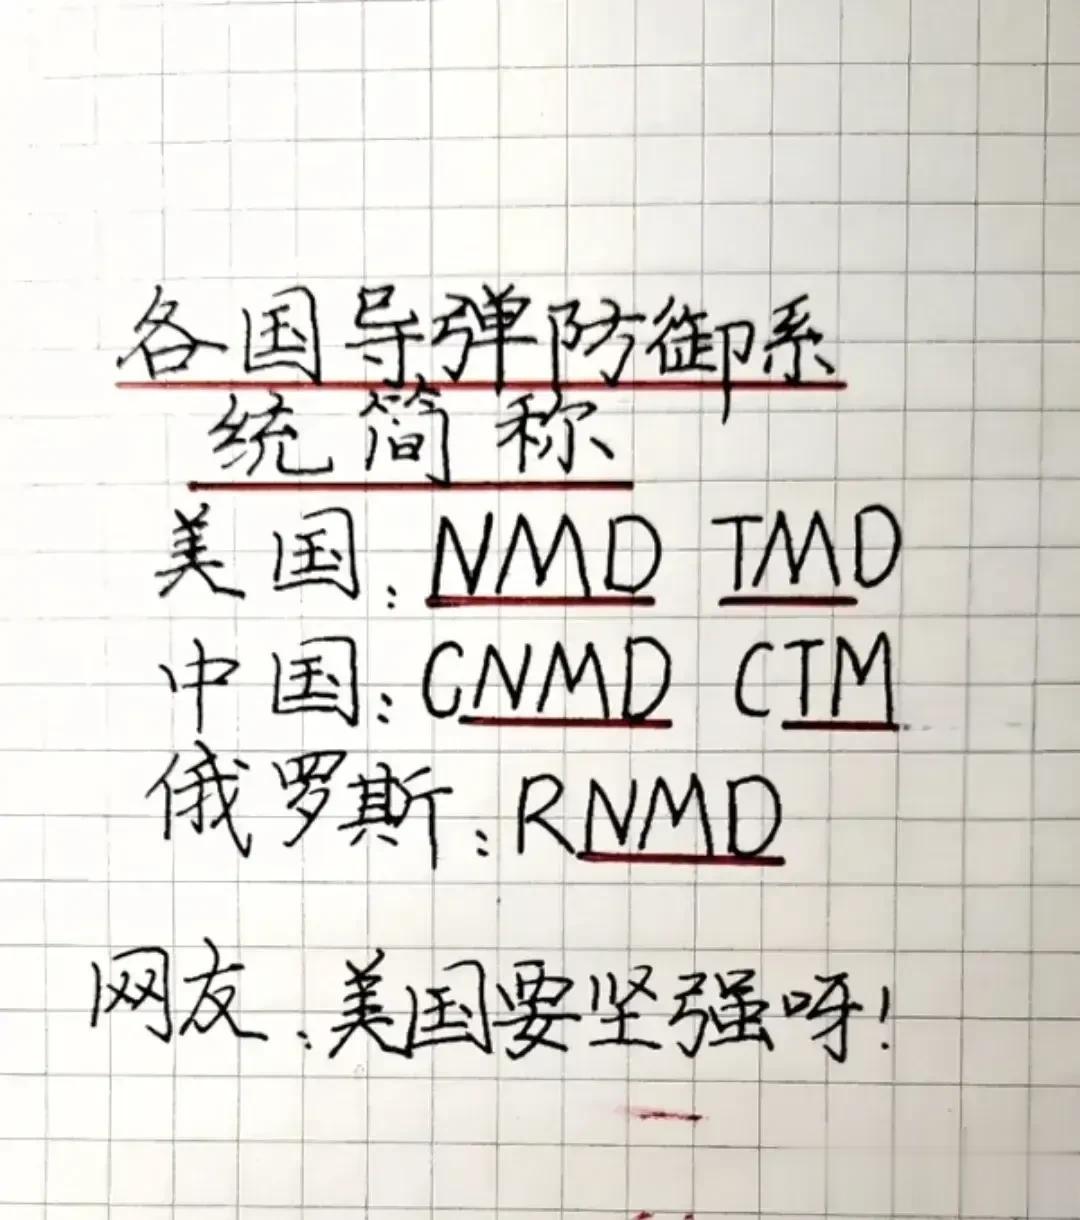 各国导弹防御系
统简称
美国：NMD TMD
中国：CNMD CTM
俄罗斯：RNMD
网友：美国要坚强呀！